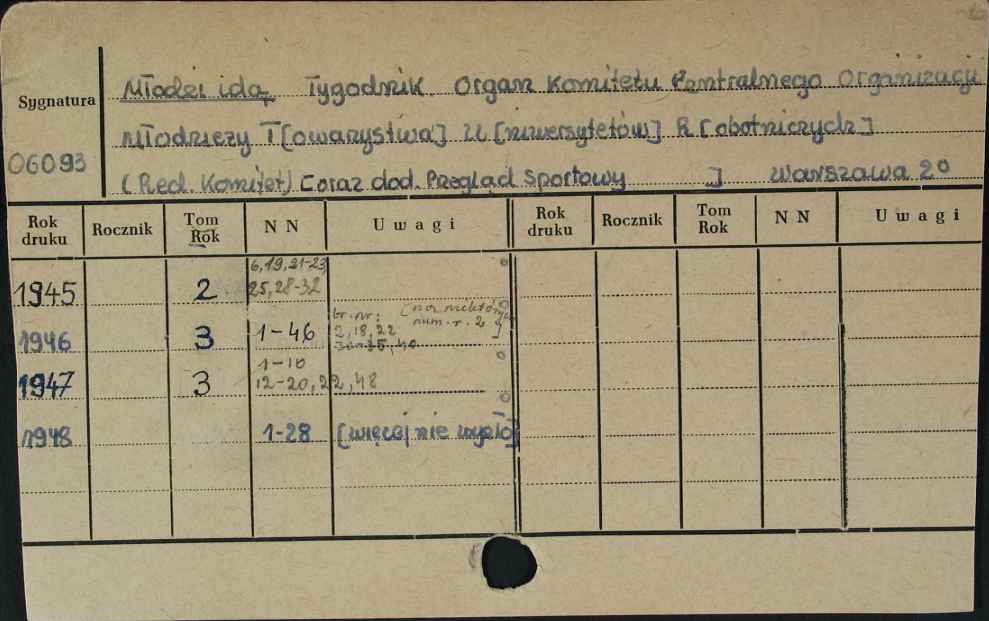 Sygnatura
06093
Młodzi idą Tygodnik. Organ Komitetu Centralnego Organizacji
Młodzieży T[owarzystwa] U[niwersytetów] R[obotniczych]
(Red. Komitet) [oraz dod. Przegląd Sportowy ] Warszawa 2°
Rok druku Rocznik Tom Rok NN Uwagi Rok druku Rocznik Tom Rok NN Uwagi
1945 2 6,19,21-23, 25,28-32
1946 3 1-46 br. nr: 2,18,22 40 [na niektórych num. r. 2]
1947 3 1-10 12-20,22,48
1948 1-28 [więcej nie wyszło]